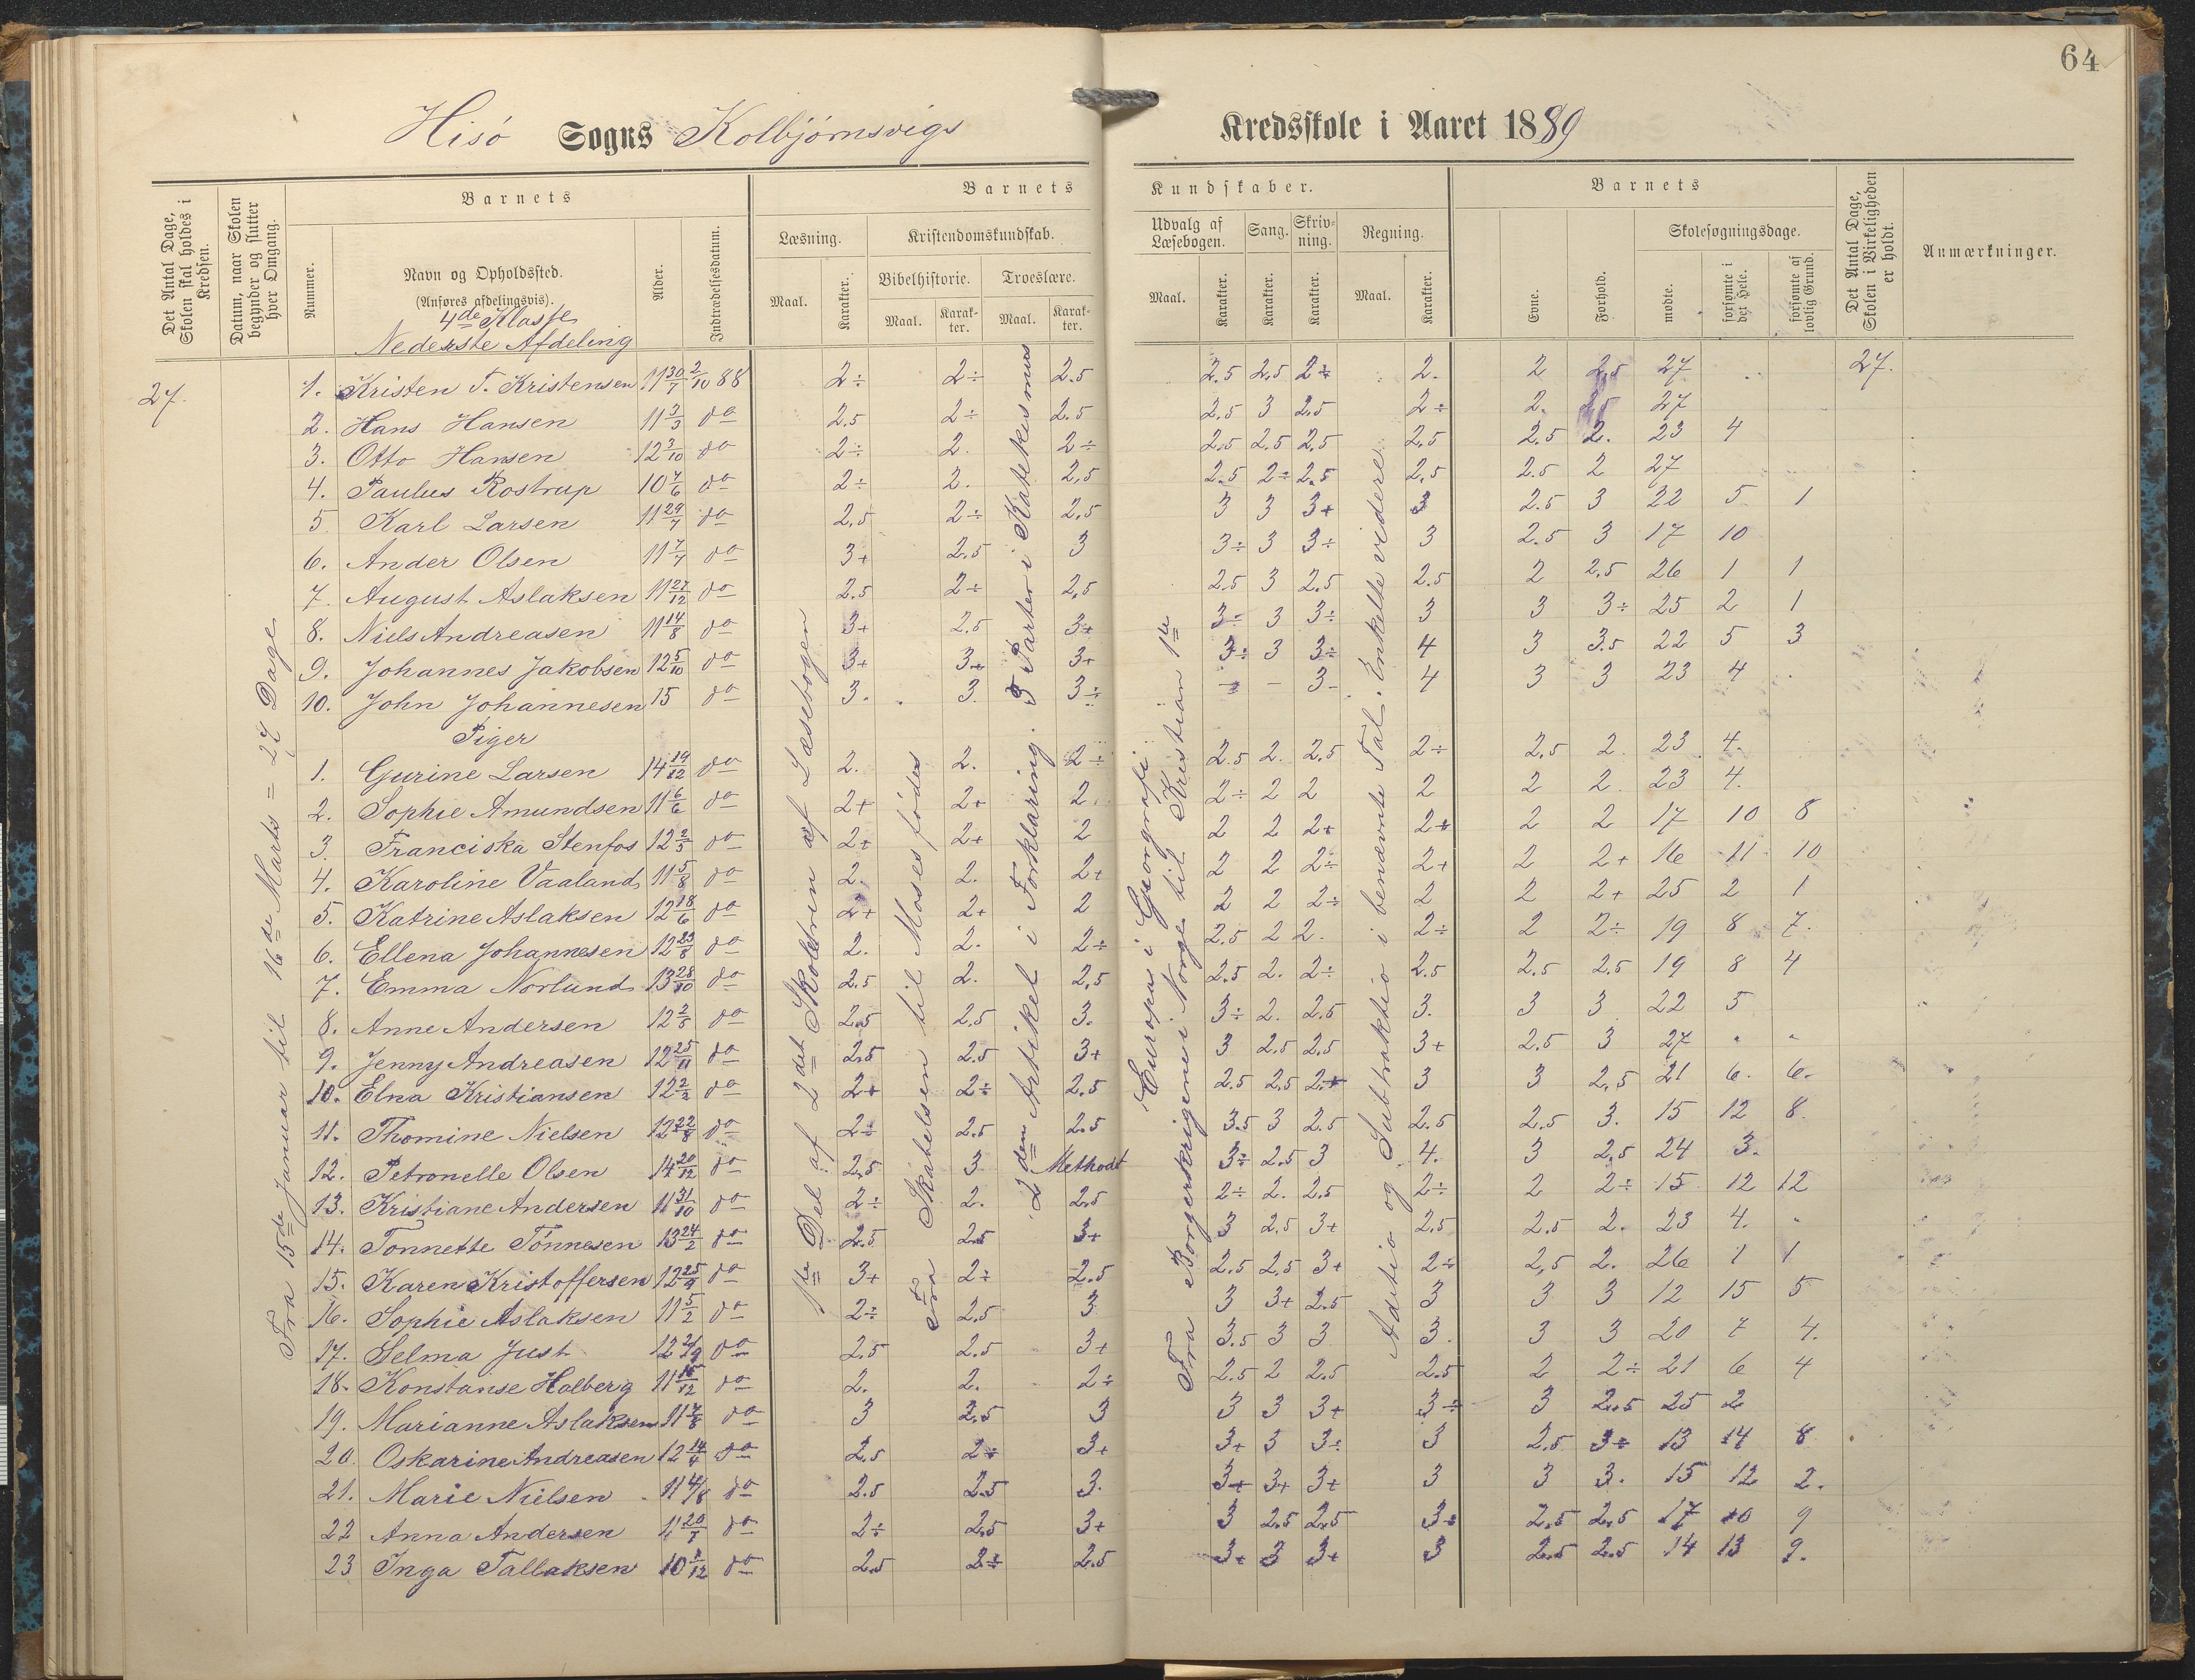 64
Hisö Sogns Kolbjörnsvigs Kredsskole i Aaret 1889
Det Antal Dage, Skolen skal holdes i Kredsen.
Datum, naar Skolen begynder og slutter hver Omgang.
Barnets
Nummer.
Navn og Opholdssted.
(Anføres afdelingsvis).
4de Klasse
Nederste Afdeling
Alder.
Indtrædelsesdatum.
Barnets Kundskaber.
Læsning.
Maal.
Karakter.
Kristendomskundskab.
Bibelhistorie.
Maal.
Karakter.
Troeslære.
Maal.
Karakter.
Udvalg af Læsebogen.
Maal.
Karakter.
Sang.
Karakter.
Skrivning.
Karakter.
Regning.
Maal.
Karakter.
Barnets
Evne.
Forhold.
Skolesøgningsdage.
mødte.
forsømte i det Hele.
forsømte af lovlig Grund.
Det Antal Dage, Skolen i Virkeligheden er holdt.
Anmærkninger.
27.
Fra 15de Januar til 16de Marts = 27 Dage
1ste Del af 2det Skoletrin af Læsebogen
Fra Skabelsen til Moses födes
2den Artikel i Forklaring. 3 Parter i Katekismus
Europa i Geografi
Fra Borgerkrigene i Norge til Kristian 1ste
Aditio og Subtraktio i benævnte Tal. Enkelte videre.
1. Kristen T. Kristensen 11 30/7 2/10 88 2÷ 2÷ 2.5 2.5 2.5 2÷ 2. 2 2,5 27 27.
2. Hans Hansen 11 3/3 do 2.5 2÷ 2.5 2.5 3 2.5 2÷ 2. 2.5 27
3. Otto Hansen 12 3/10 do 2÷ 2. 2÷ 2.5 2.5 2.5 2.5 2.5 2. 23 4
4. Paulus Rostrup 10 7/6 do 2÷ 2. 2.5 2.5 2÷ 2.5 2.5 2.5 2 27
5 Karl Larsen 11 29/7 do 2.5 2÷ 2.5 3 3 3+ 3 2.5 3 22 5 1
6. Ander Olsen 11 7/7 do 3+ 2.5 3 3÷ 3 3÷ 3 2.5 3 17 10
7. August Aslaksen 11 27/12 do 2.5 2÷ 2,5 2.5 3 2.5 2.5 2 2.5 26 1 1
8. Niels Andreasen 11 14/8 do 3+ 2.5 3+ 3÷ 3 3÷ 3 3 3÷ 25 2 1
9. Johannes Jakobsen 12 5/10 do 3+ 3+ 3+ 3÷ 3 3÷ 4 3 3.5 22 5 3
10. John Johannesen 15 do 3. 3. 3÷ - - 3- 4 3 3 23 4
Piger
1. Gurine Larsen 14 19/12 do 2. 2. 2÷ 2.5 2. 2.5 2÷ 2,5 2. 23 4.
2. Sophie Amundsen 11 6/6 do 2+ 2+ 2 2÷ 2 2 2 2 2. 23 4.
3. Franciska Stenfos 12 2/3 do 2+ 2+ 2 2 2 2+ 2+ 2 2 17 10 8
4. Karoline Vaaland 11 5/8 do 2. 2. 2+ 2 2 2÷ 2+ 2 2+ 16 11 10
5. Katrine Aslaksen 12 18/6 do 2+ 2+ 2 2 2 2÷ 2 2 2+ 25 2 1
6. Ellena Johannesen 12 23/8 do 2. 2. 2÷ 2.5 2 2. 2÷ 2 2÷ 19 8 7.
7. Emma Norlund 13 28/10 do 2.5 2. 2,5 2.5 2. 2÷ 2.5 2.5 2.5 19 8 4
8. Anne Andersen 12 2/5 do 2.5 2.5 3. 3÷ 2. 2.5 3. 3 3 22 5
9. Jenny Andreasen 12 25/11 do 2.5 2.5 3+ 3 2.5 2.5 3+ 2.5 3 27 " "
10. Elna Kristiansen 12 2/2 do 2+ 2÷ 2.5 2.5 2.5 2.+ 3 3 2,5 21 6. 6.
11. Thomine Nielsen 12 22/8 do 2÷ 2.5 2.5 3.5 3 2.5 2.5 2,5 3. 15 12 8.
12. Petronelle Olsen 14 20/12 do 2.5 3 Methodt 3÷ 2.5 3 4. 3 2.5 24 3.
13. Kristiane Andersen 11 31/10 do 2÷ 2. 2.5 2÷ 2. 2.5 2÷ 2 2÷ 15 12 12
14. Tonnette Tönnesen 13 24/2 do 2.5 2.5 3+ 3 2.5 3+ 2.5 2.5 2. 23 4.
15. Karen Kristoffersen 12 25/9 do 3+ 2÷ 2.5 2.5 2.5 3+ 2÷ 2,5 2. 26 1 1
16. Sophie Aslaksen 11 5/2 do 2÷ 2.5 3 3 3+ 2.5 3 3 3 12 15 5
17. Selma Just 12 2/9 do 2.5 2.5 3+ 3.5 3 3 3. 3 3 20 7 4.
18. Konstanse Halberg 11 15/12 do 2. 2. 2÷ 2.5 2 2.5 2.5 2 2÷ 21 6 4
19. Marianne Aslaksen 11 7/8 do 3 2.5 3 3 3 3+ 3÷ 3 2.5 25 2
20. Oskarine Andreasen 12 14/4 do 2.5 2÷ 3+ 3+ 3 3÷ 3 2.5 3÷ 13 14 8
21. Marie Nielsen 11 4/8 do 2.5 2.5 3. 3+ 3+ 3+ 3 3 3. 15 12 2.
22 Anna Andersen 11 20/7 do 2÷ 2.5 3+ 3 2.5 2.5 3÷ 2.5 2.5 17 10 9
23 Inga Tallaksen 10 1/12 do 2.5 2÷ 2.5 3+ 3 3+ 3 2.5 2.5 14 13 9.